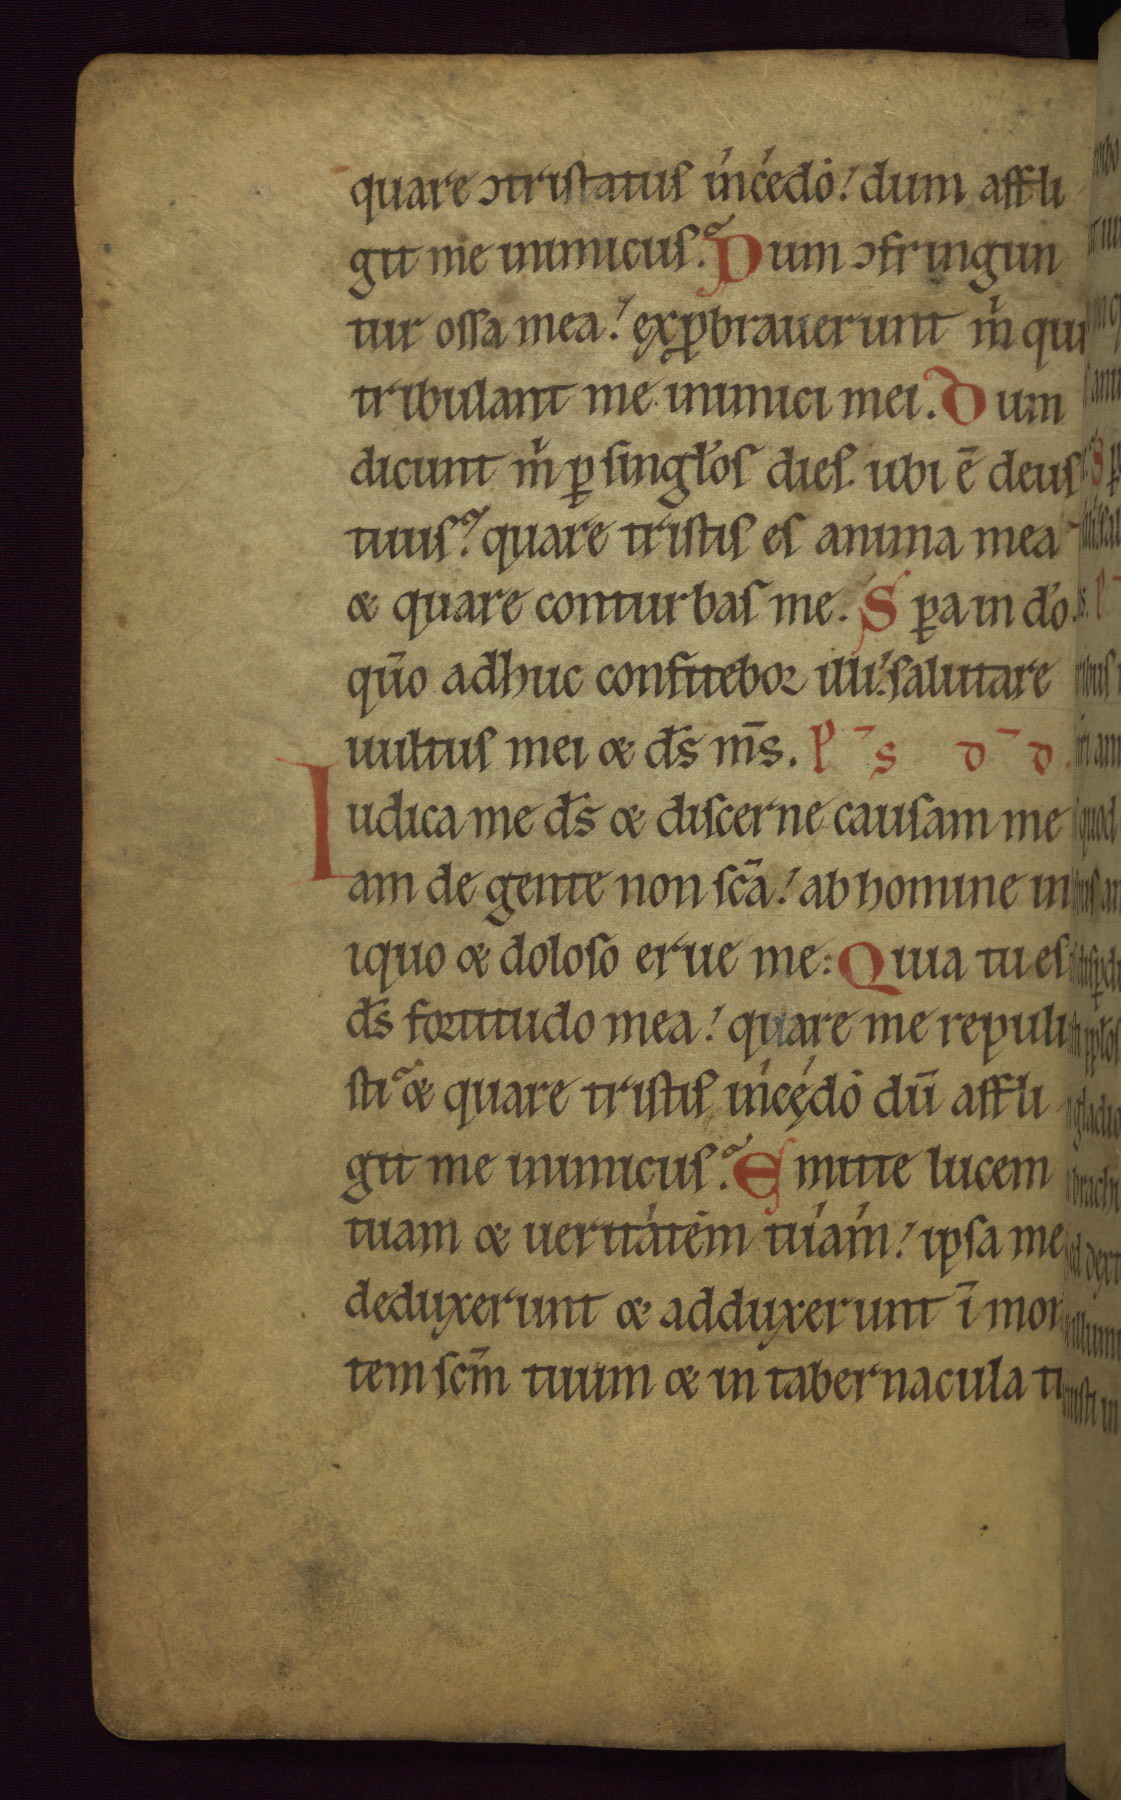 quare ↄtristatus incedo! dum affli
git me inimicus? Dum ↄfringun
tur ossa mea! exꝓbrauerunt m̍ qui
tribulant me inimici mei. Dum
dicunt m̍ ꝑ singłos dies. ubi ē deus
tuus? quare tristis es anima mea
⁊ quare conturbas me. S ꝑa in do.
qm̄o adhuc confitebor illi! salutare
uultus mei ⁊ ds̄ ms̄. P¯s D¯D.
Iudica me ds̄ ⁊ discerne causam me
am de gente non scā! ab homine in
iquo ⁊ doloso erue me: Quia tu es
ds̄ fortitudo mea! quare me repuli
sti? ⁊ quare tristis incedo dū affli
git me inimicus? Emitte lucem
tuam ⁊ ueritatem tuam! ipsa me
deduxerunt ⁊ adduxerunt ī mon
tem scm̄ tuum ⁊ in tabernacula tu